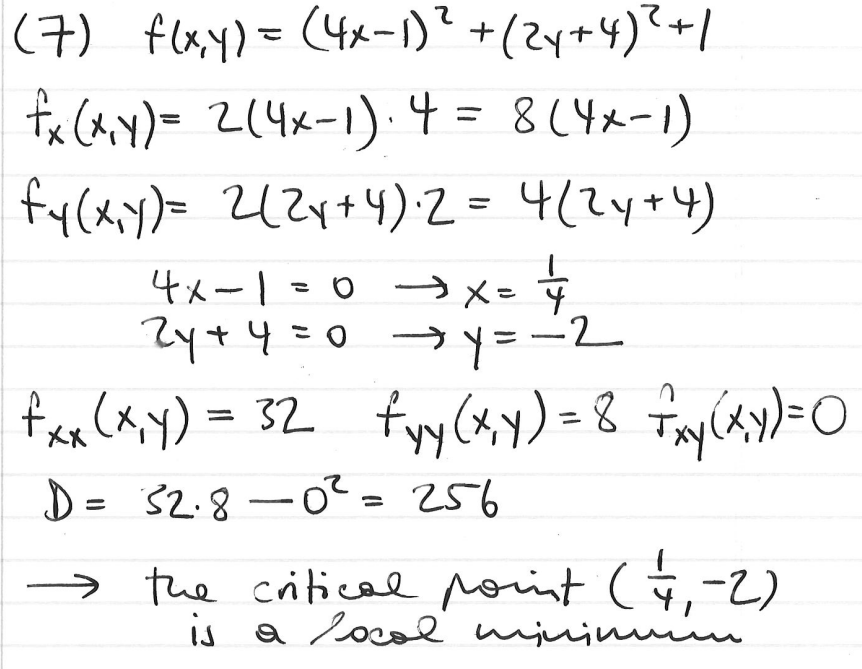 (7) f(x,y) = (4x-1)² + (2y+4)² + 1
fx(x,y) = 2(4x-1)·4 = 8(4x-1)
fy(x,y) = 2(2y+4)·2 = 4(2y+4)
4x-1 = 0 → x = 1/4
2y+4 = 0 → y = -2
fxx(x,y) = 32 fyy(x,y) = 8 fxy(x,y) = 0
D = 32·8 - 0² = 256
→ the critical point (1/4, -2)
is a local minimum